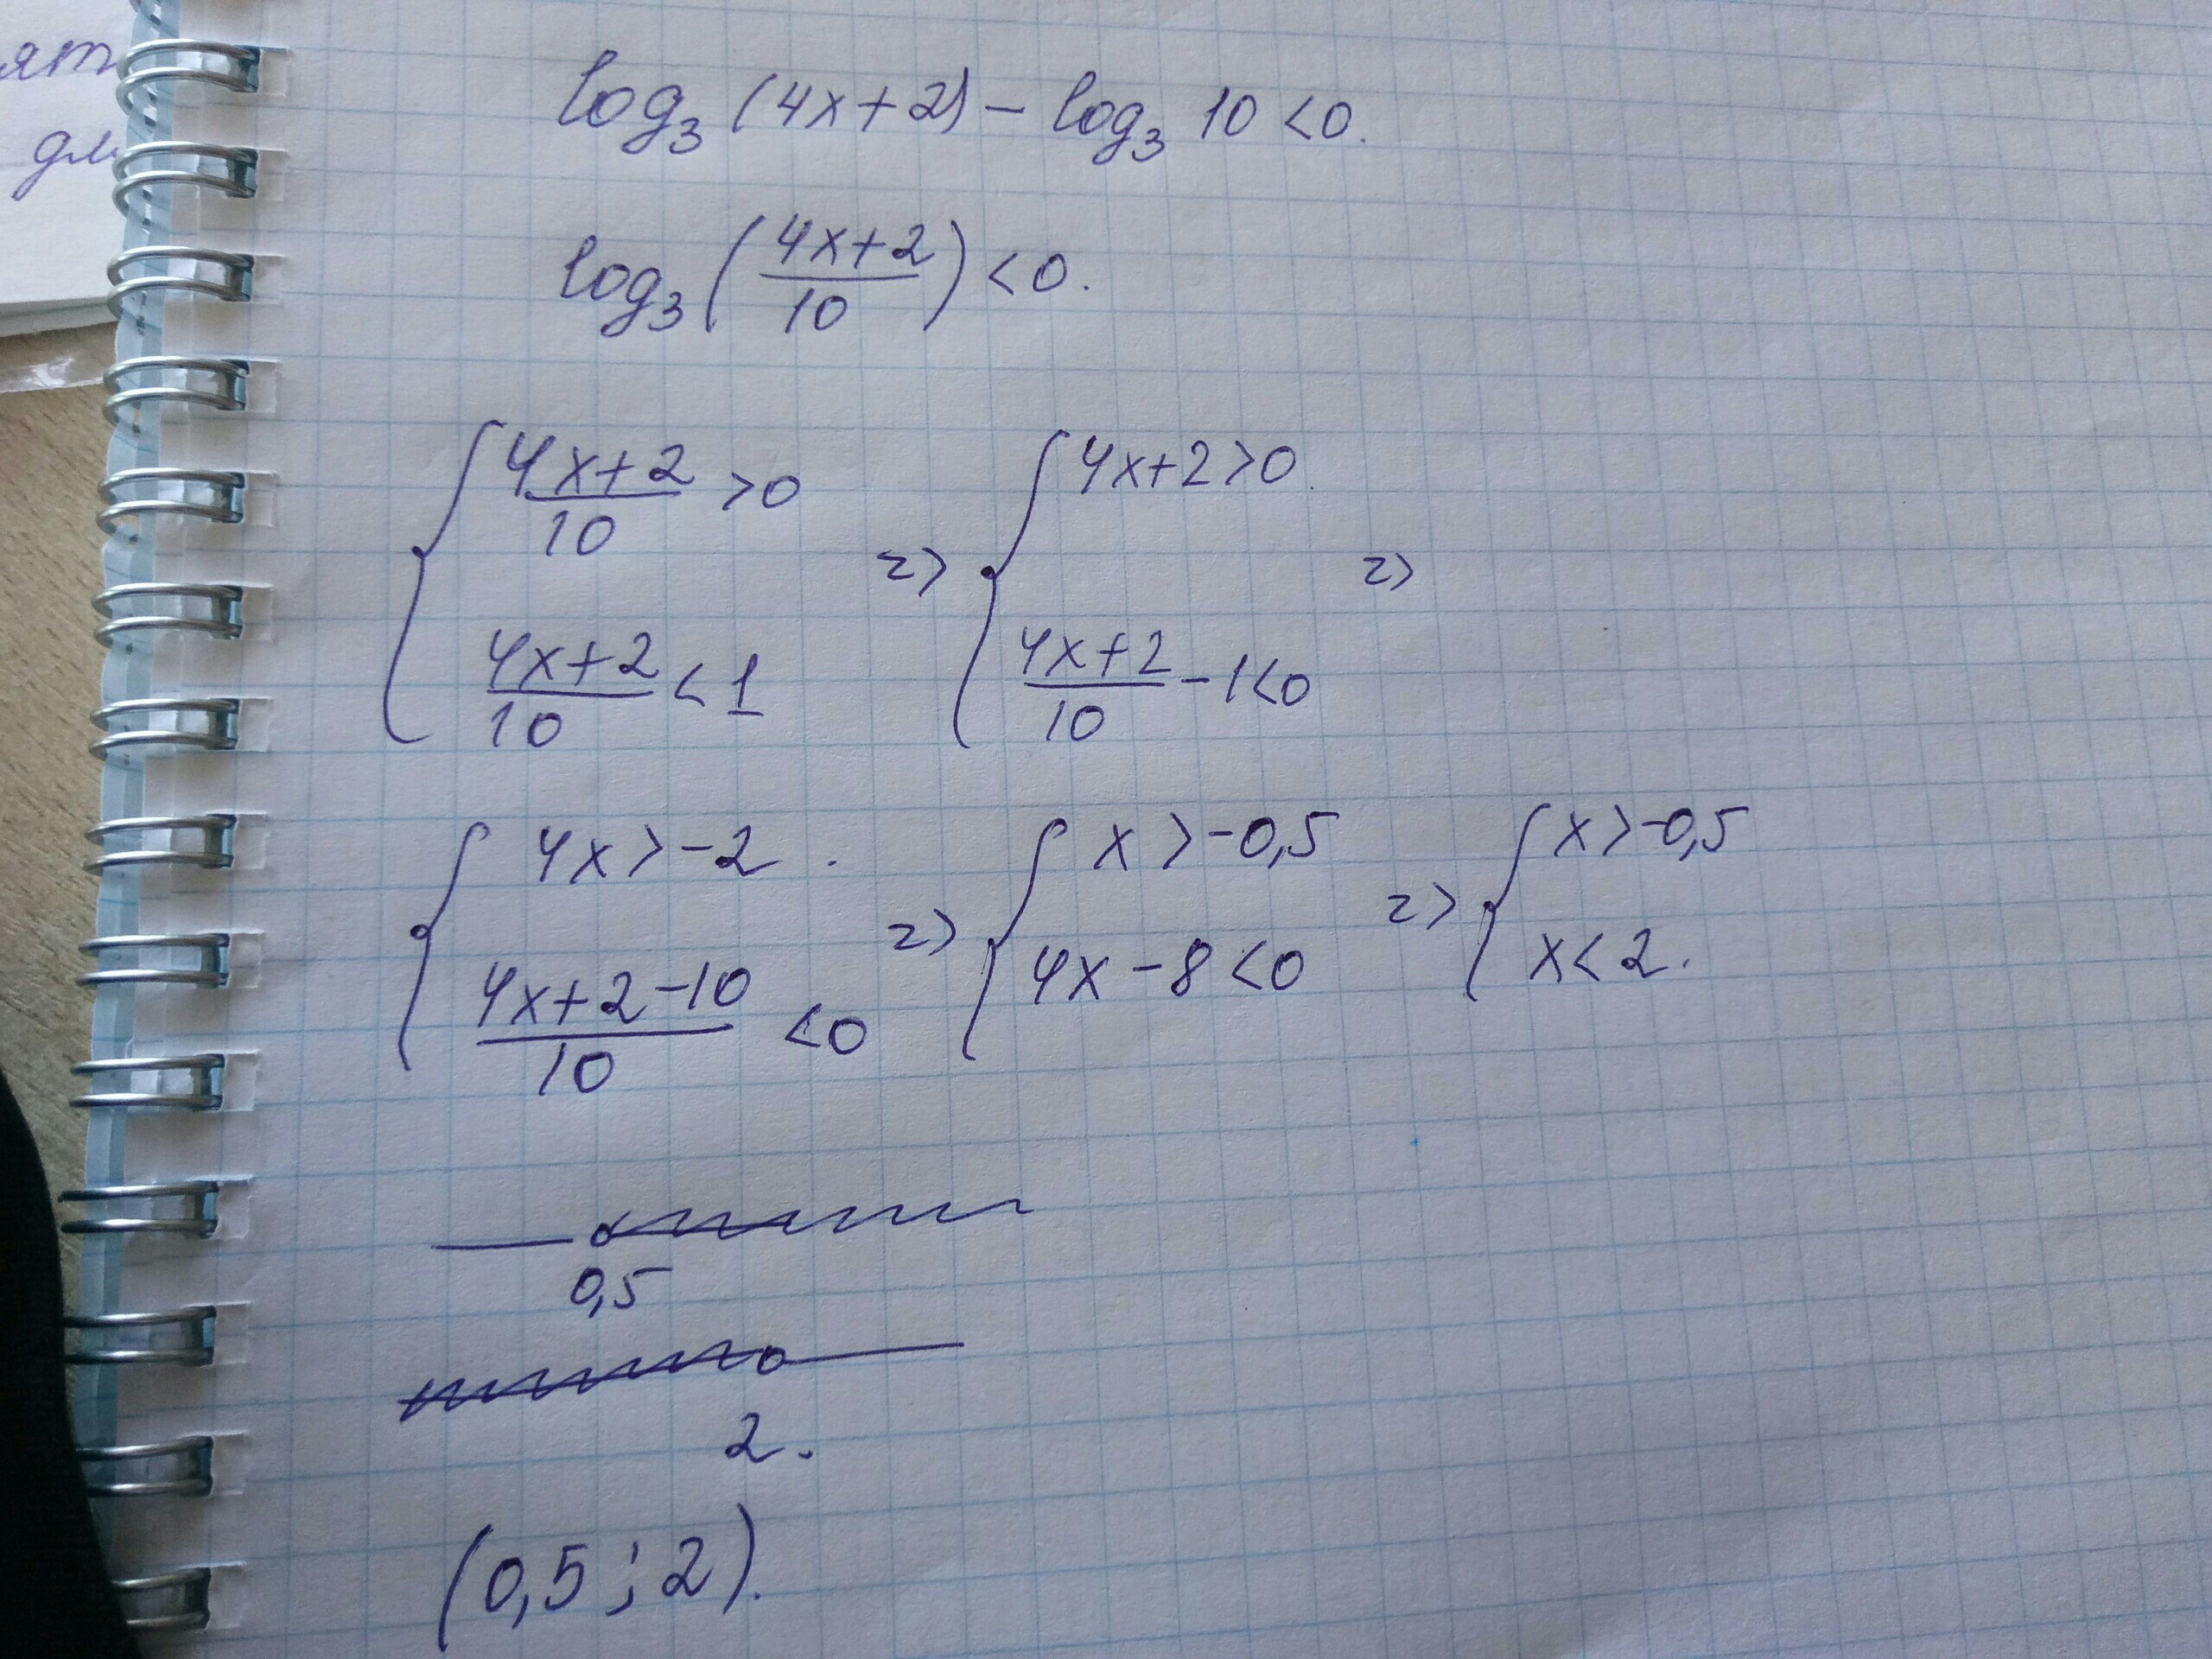 ят
дл
log₃ (4x+2) - log₃ 10 <0.
log₃ ( (4x+2)/10 ) <0.
{ (4x+2)/10 >0 => { 4x+2>0. =>
(4x+2)/10 < 1 (4x+2)/10 - 1<0
{ 4x>-2 . => { x>-0,5 => { x>-0,5
(4x+2-10)/10 <0 4x-8<0 x<2.
0,5
2.
(0,5;2).